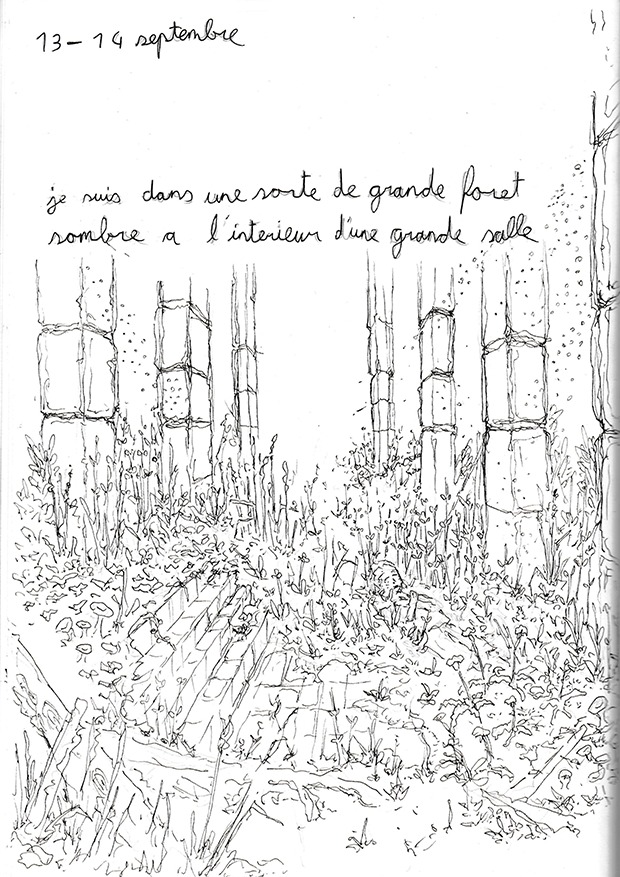 13-14 septembre
je suis dans une sorte de grande foret
sombre a l'interieur d'une grande salle